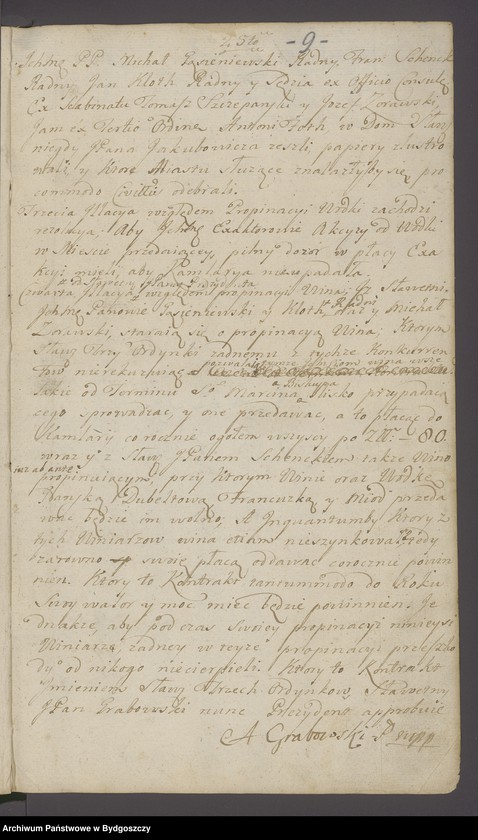 - 9 -
Jchmę PP. Michał Gąsieniewski Radny, Fran: Schenck
Radny, Jan Kloth Radny y Sędzia ex Officio Consulę
Ex Scabinatu Tomasz Szczepański y Jozef Zorawski,
Jam ex Tertio Ordine Antoni Floth w Dom Sław
niegdy JPana Jakubowicza zeszli, papiery zlustro
wali y Ktore Miastu służące znalazłyby się pro
commodo Civitatis odebrali.
Trzecia Illacya względem Propinacyi Wodki zachodzi
rezolucya: Aby Jchmę Exaktorowie Akcyzy od Wodki
w Mieście przedaiącey, pilny dozor w płacy Exa
kcyi mieli, aby Kamlarya nieupadała
Czwarta Illacya względem propinacyi Wina; iż Sławetni
Jchmę Panowie Gąsieniewski y Kloth Radni oraz y Michał
Zorawski, staraią się o propinacyą Wina; Ktorym
Sławę Trzy Ordynki żadnemu z tychże Konkurren
tow nierekuzuiąc
skie od Terminu S. Marcina Biskupa blisko przypadaią
cego sprowadzac, y one przedawac, a to płacąc do
Kamlaryi corocznie ogołem wszyscy po Złł. - 80.
wraz y z Sławę JPanem Schenckiem także Wino
iuz ad ante propinuiącym, przy Ktorym Winie oraz Wodkę
Pańską Dubeltową Francuzką y Miod przeda
wac będzie im wolno, A Inquantumby Ktory z
tych Winiarzow wina etiam nieszynkował, tedy
zarowno swoię płacą oddawac corocznie powin
nien. Ktory to Kontrakt tantummodo do Roku
Swoy walor y moc miec będzie powinnien. Je
dnakże, aby podczas swoiey propinacyi ninieysi
Winiarze żadney w teyże propinacyi przeszko
dy od nikogo niecierpieli. Ktory to Kontrakt
Imieniem Sławę Trzech Ordynkow, Sławetny
JPan Grabowski nunc Prezydent approbuie
A Grabowski P mpp
Archiwum Państwowe w Bydgoszczy